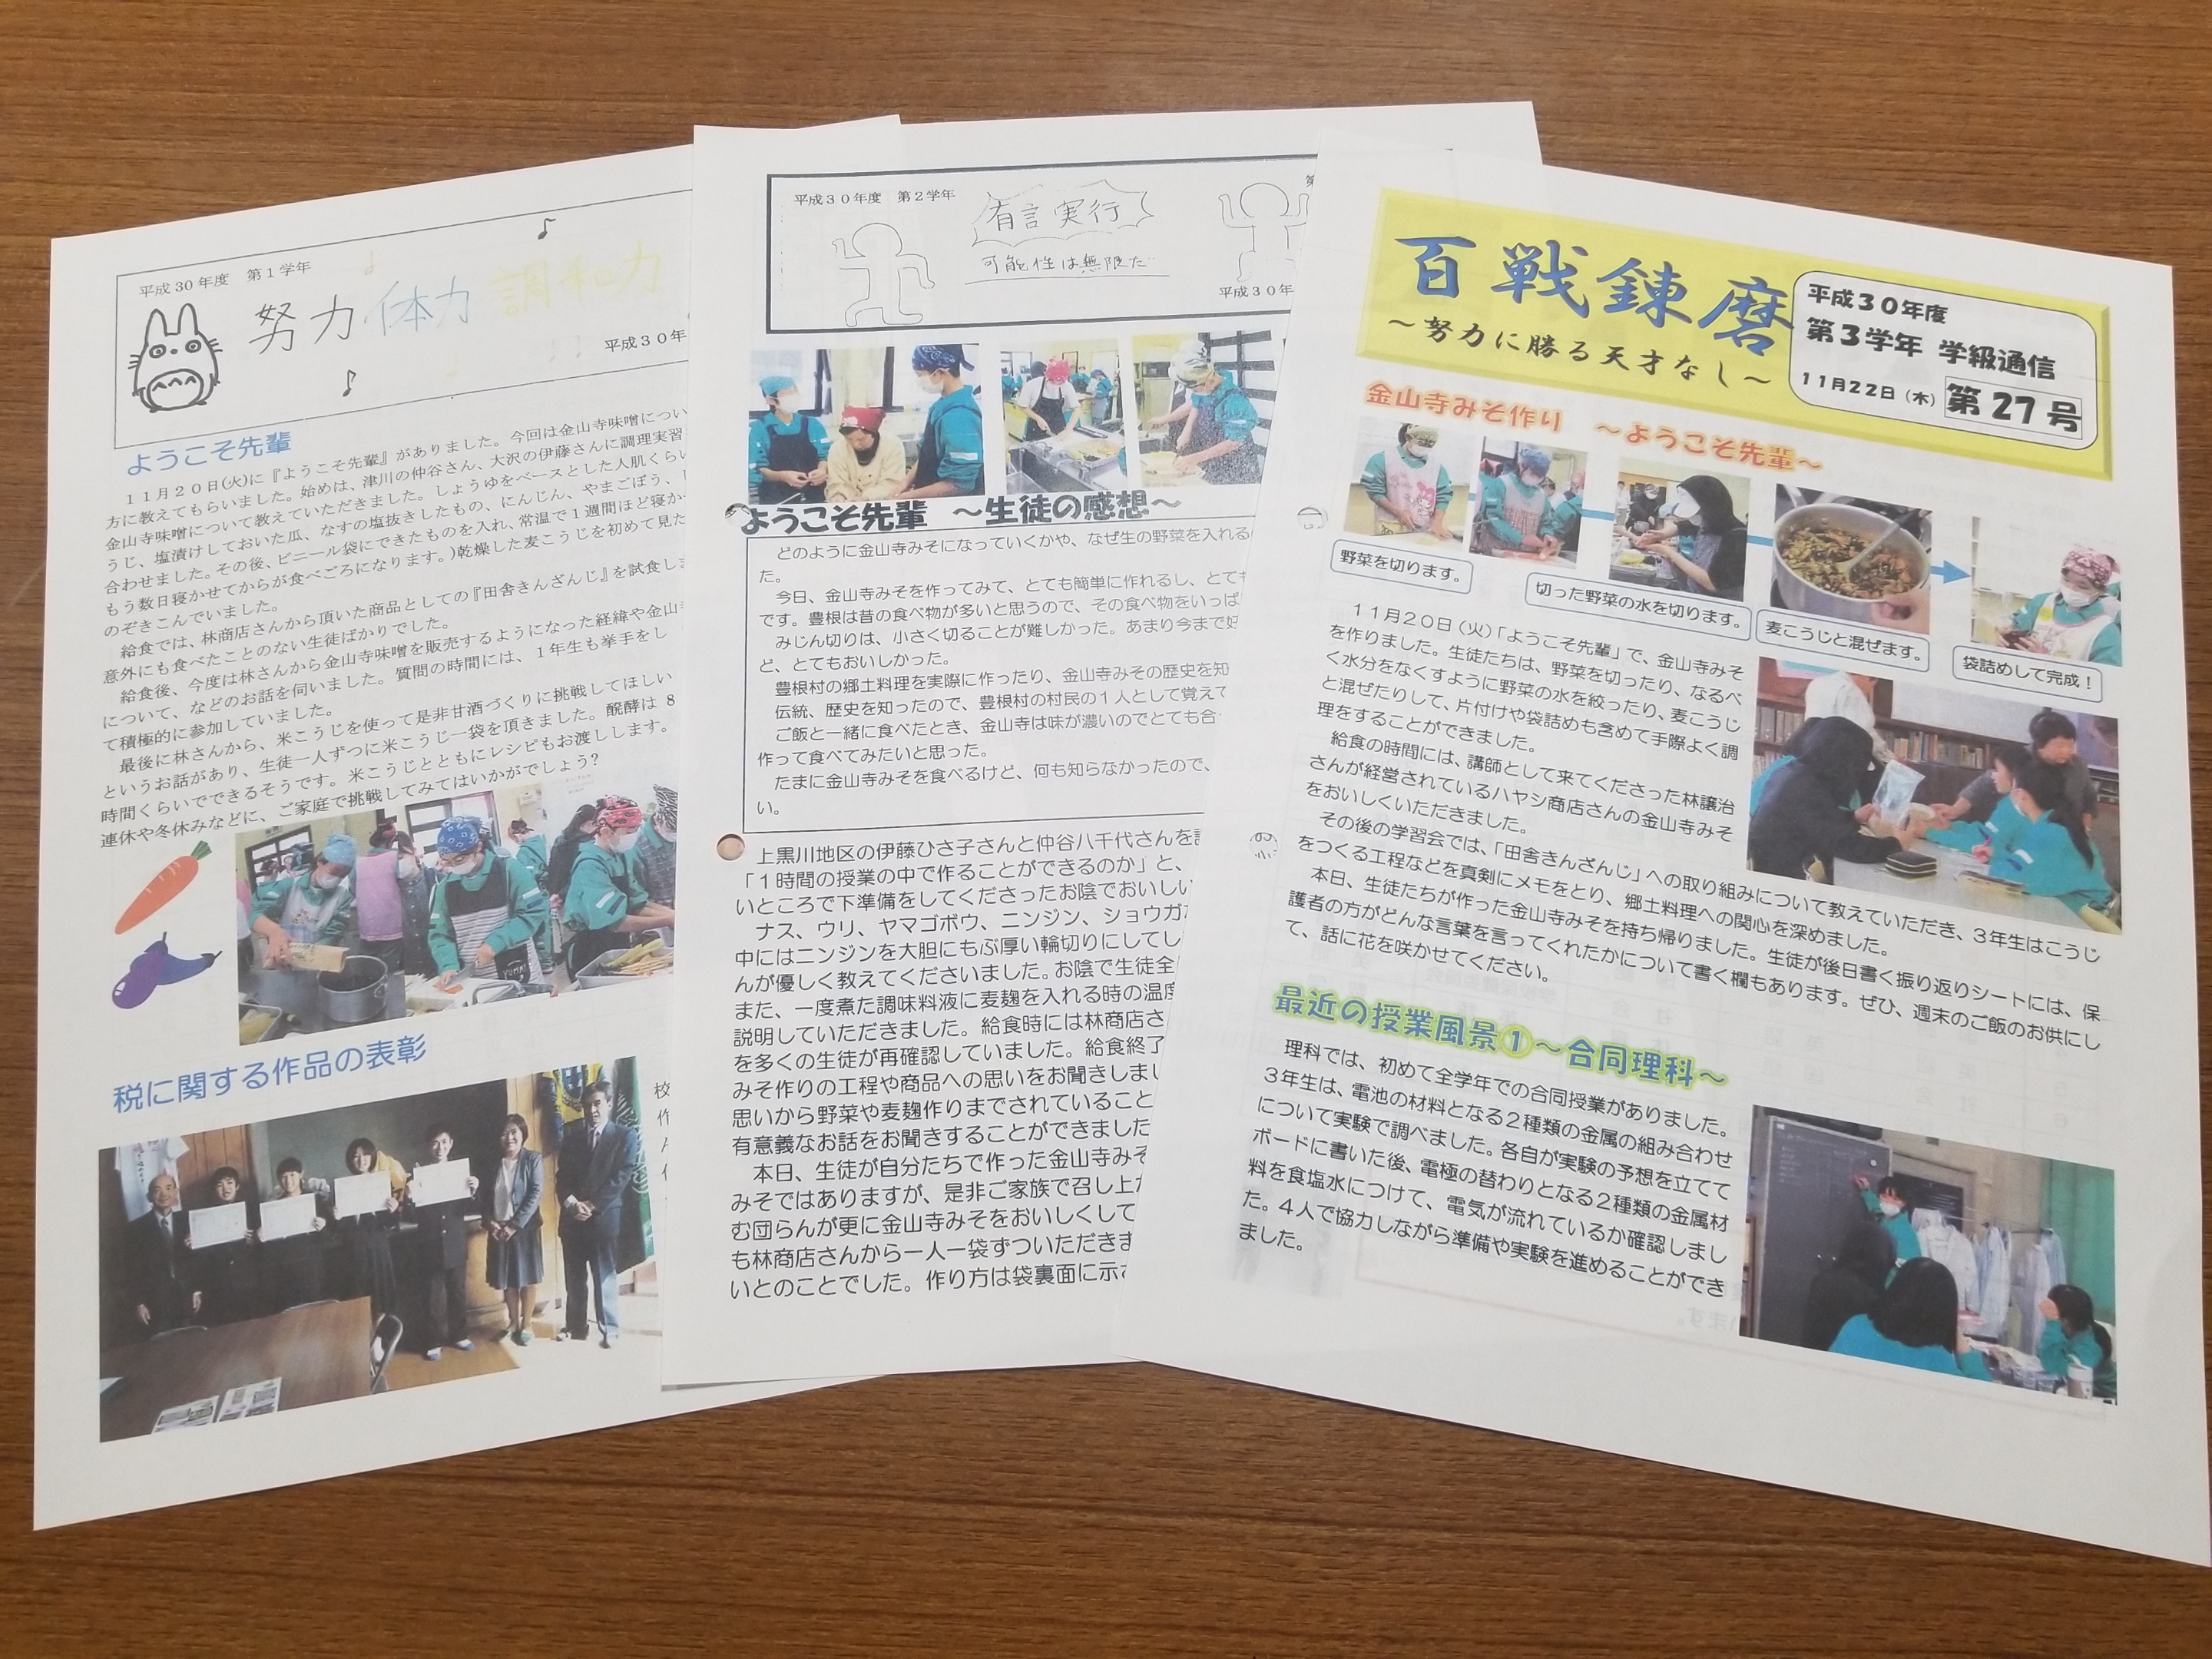 平成30年度　第1学年
努力 体力 調和力
平成30年
ようこそ先輩
１１月２０日(火)に『ようこそ先輩』がありました。今回は金山寺味噌につい
方に教えてもらいました。始めは、津川の仲谷さん、大沢の伊藤さんに調理実習
金山寺味噌について教えていただきました。しょうゆをベースとした人肌くらい
うじ、塩漬けしておいた瓜、なすの塩抜きしたもの、にんじん、やまごぼう、
合わせました。その後、ビニール袋にできたものを入れ、常温で１週間ほど寝か
もう数日寝かせてからが食べごろになります。)乾燥した麦こうじを初めて見た
のぞきこんでいました。
給食では、林商店さんから頂いた商品としての『田舎きんざんじ』を試食し
意外にも食べたことのない生徒ばかりでした。
給食後、今度は林さんから金山寺味噌を販売するようになった経緯や金山
について、などのお話を伺いました。質問の時間には、１年生も挙手をし
て積極的に参加していました。
最後に林さんから、米こうじを使って是非甘酒づくりに挑戦してほしい
というお話があり、生徒一人ずつに米こうじ一袋を頂きました。醗酵は８
時間くらいでできるそうです。米こうじとともにレシピもお渡しします。
連休や冬休みなどに、ご家庭で挑戦してみてはいかがでしょう?
YUMMY
税に関する作品の表彰
校
作
ん
平成３０年度　第２学年
有言実行
可能性は無限だ
第
平成３０年
ようこそ先輩　～生徒の感想～
どのように金山寺みそになっていくかや、なぜ生の野菜を入れる
た。
今日、金山寺みそを作ってみて、とても簡単に作れるし、とても
です。豊根は昔の食べ物が多いと思うので、その食べ物をいっぱ
みじん切りは、小さく切ることが難しかった。あまり今まで好
と、とてもおいしかった。
豊根村の郷土料理を実際に作ったり、金山寺みその歴史を知
伝統、歴史を知ったので、豊根村の村民の１人として覚えて
ご飯と一緒に食べたとき、金山寺は味が濃いのでとても合
作って食べてみたいと思った。
たまに金山寺みそを食べるけど、何も知らなかったので、
い。
上黒川地区の伊藤ひさ子さんと仲谷八千代さんを
「１時間の授業の中で作ることができるのか」と、
いところで下準備をしてくださったお陰でおいしい
ナス、ウリ、ヤマゴボウ、ニンジン、ショウガ
中にはニンジンを大胆にもぶ厚い輪切りにしてし
んが優しく教えてくださいました。お陰で生徒全
また、一度煮た調味料液に麦麹を入れる時の温度
説明していただきました。給食時には林商店さ
を多くの生徒が再確認していました。給食終了
みそ作りの工程や商品への思いをお聞きしまし
思いから野菜や麦麹作りまでされていること
有意義なお話をお聞きすることができました
本日、生徒が自分たちで作った金山寺みそ
みそではありますが、是非ご家族で召し上が
む団らんが更に金山寺みそをおいしくして
も林商店さんから一人一袋ずついただきま
いとのことでした。作り方は袋裏面に示さ
百戦錬磨
～努力に勝る天才なし～
平成３０年度
第３学年 学級通信
１１月２２日（木）第27号
金山寺みそ作り　～ようこそ先輩～
野菜を切ります。
切った野菜の水を切ります。
麦こうじと混ぜます。
袋詰めして完成！
１１月２０日（火）「ようこそ先輩」で、金山寺みそ
を作りました。生徒たちは、野菜を切ったり、なるべ
く水分をなくすように野菜の水を絞ったり、麦こうじ
と混ぜたりして、片付けや袋詰めも含めて手際よく調
理をすることができました。
給食の時間には、講師として来てくださった林譲治
さんが経営されているハヤシ商店さんの金山寺みそ
をおいしくいただきました。
その後の学習会では、「田舎きんざんじ」への取り組みについて教えていただき、３年生はこうじ
をつくる工程などを真剣にメモをとり、郷土料理への関心を深めました。
本日、生徒たちが作った金山寺みそを持ち帰りました。生徒が後日書く振り返りシートには、保
護者の方がどんな言葉を言ってくれたかについて書く欄もあります。ぜひ、週末のご飯のお供にし
て、話に花を咲かせてください。
最近の授業風景①～合同理科～
理科では、初めて全学年での合同授業がありました。
３年生は、電池の材料となる２種類の金属の組み合わせ
について実験で調べました。各自が実験の予想を立てて
ボードに書いた後、電極の替わりとなる２種類の金属材
料を食塩水につけて、電気が流れているか確認しまし
た。４人で協力しながら準備や実験を進めることができ
ました。